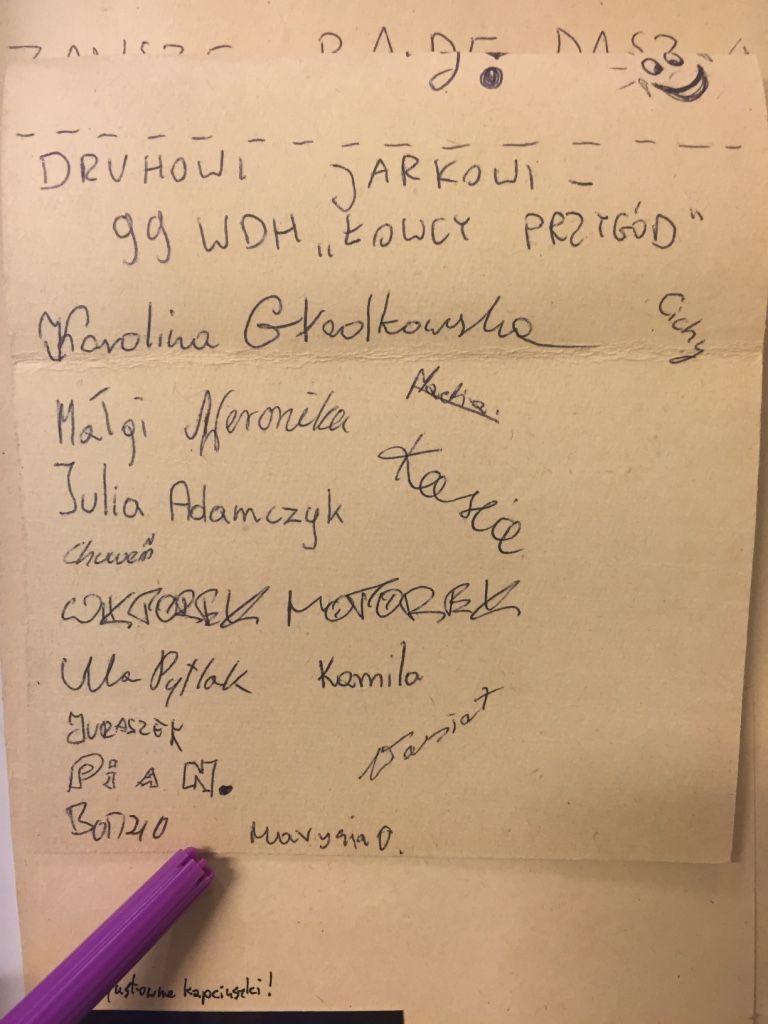 DRUHOWI JARKOWI -
99 WDH „ŁOWCY PRZYGÓD"
Karolina Głodkowska
Cichy
Małgi Weronika
Julia Adamczyk
Kasia
Chuweń
WKTOREK MOTOREK
Ula Pytlak Kamila
JURASZEK
PiAN.
Marysia O.
kapciuszki!